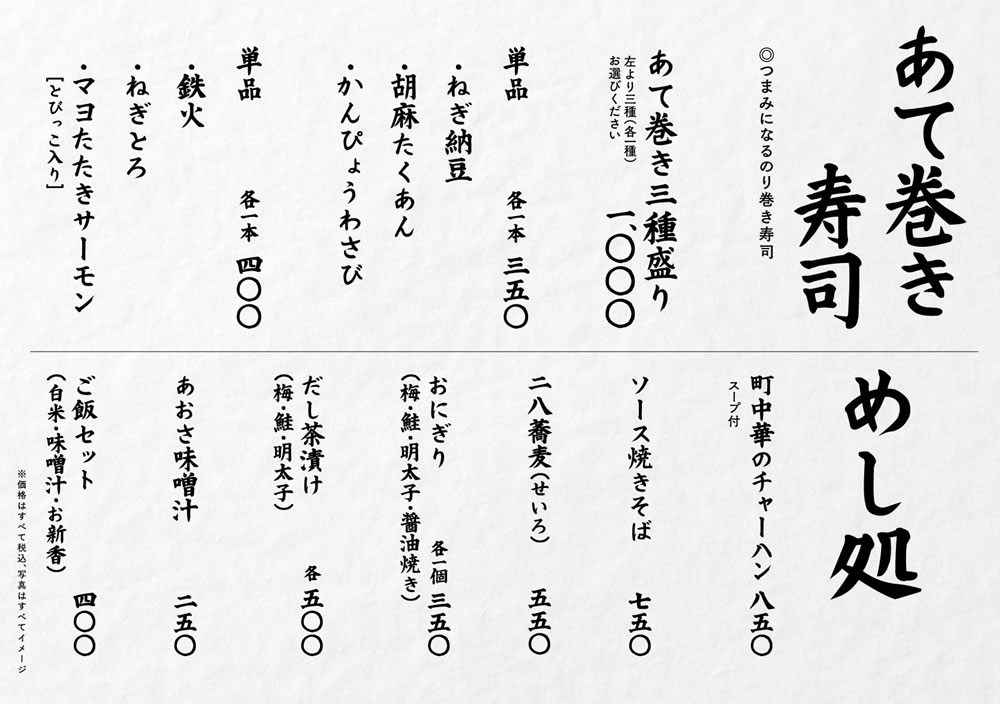 あて巻き
寿司
◎つまみになるのり巻き寿司
あて巻き三種盛り
左より三種(各一種)
お選びください
一、〇〇〇
単品 各一本 三五〇
・ねぎ納豆
・胡麻たくあん
・かんぴょうわさび
単品 各一本 四〇〇
・鉄火
・ねぎとろ
・マヨたたきサーモン
[とびっこ入り]
めし処
町中華のチャーハン 八五〇
スープ付
ソース焼きそば 七五〇
二八蕎麦(せいろ) 五五〇
おにぎり 各一個 三五〇
(梅・鮭・明太子・醤油焼き)
だし茶漬け 各 五〇〇
(梅・鮭・明太子)
あおさ味噌汁 二五〇
ご飯セット 四〇〇
(白米・味噌汁・お新香)
※価格はすべて税込、写真はすべてイメージ